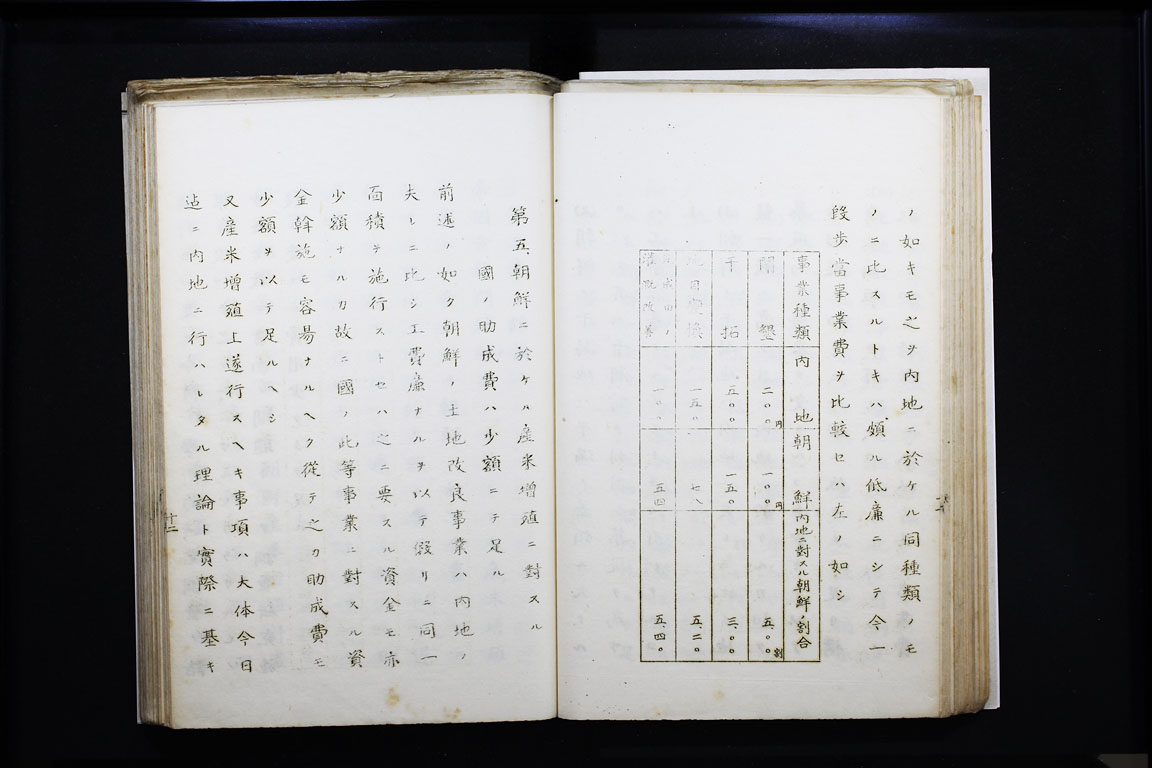 ノ如キモ之ヲ内地ニ於ケル同種類ノモ
ノニ比スルトキハ頗ル低廉ニシテ今一
段歩當事業費ヲ比較セハ左ノ如シ
事業種類 内地 朝鮮 内地ニ對スル朝鮮ノ割合
開墾 二〇〇円 一〇〇円 五、〇〇割
干拓 五〇〇 一五〇 三、〇〇
地目変換 一五〇 七八 五、二〇
灌漑改善 一〇〇 五四 五、四〇
第五、朝鮮ニ於ケル産米増殖ニ對スル
國ノ助成費ハ少額ニテ足ル
前述ノ如ク朝鮮ノ土地改良事業ハ内地ノ
夫レニ比シ工費廉ナルヲ以テ假リニ同一
面積ヲ施行ストセハ之ニ要スル資金モ亦
少額ナルカ故ニ國ノ此等事業ニ對スル資
金斡施モ容易ナルヘク從テ之カ助成費モ
少額ヲ以テ足ルヘシ
又産米増殖上遂行スヘキ事項ハ大体今日
迠ニ内地ニ行ハレタル理論ト實際ニ基キ
十二